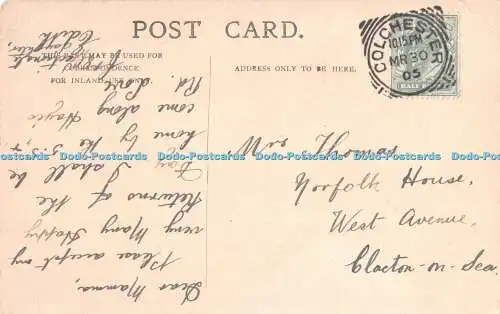 POST CARD.
THE SPACE MAY BE USED
FOR CORRESPONDENCE
FOR INLAND USE ONLY.
ADDRESS ONLY TO BE HERE.
COLCHESTER
10.15PM
MR 30
05
HALF
Mrs Thomas
Norfolk House,
West Avenue,
Clacton-on-Sea.
Dear Mamma,
Please accept my
very Many Happy
Returns of the
Day. I shall be
home by the 5.34
come along
Rd.
Edith
Dodo-Postcards Dodo-Postcards Dodo-Postcards Dodo-Postcards Dodo-Postcards Dodo-Postcards